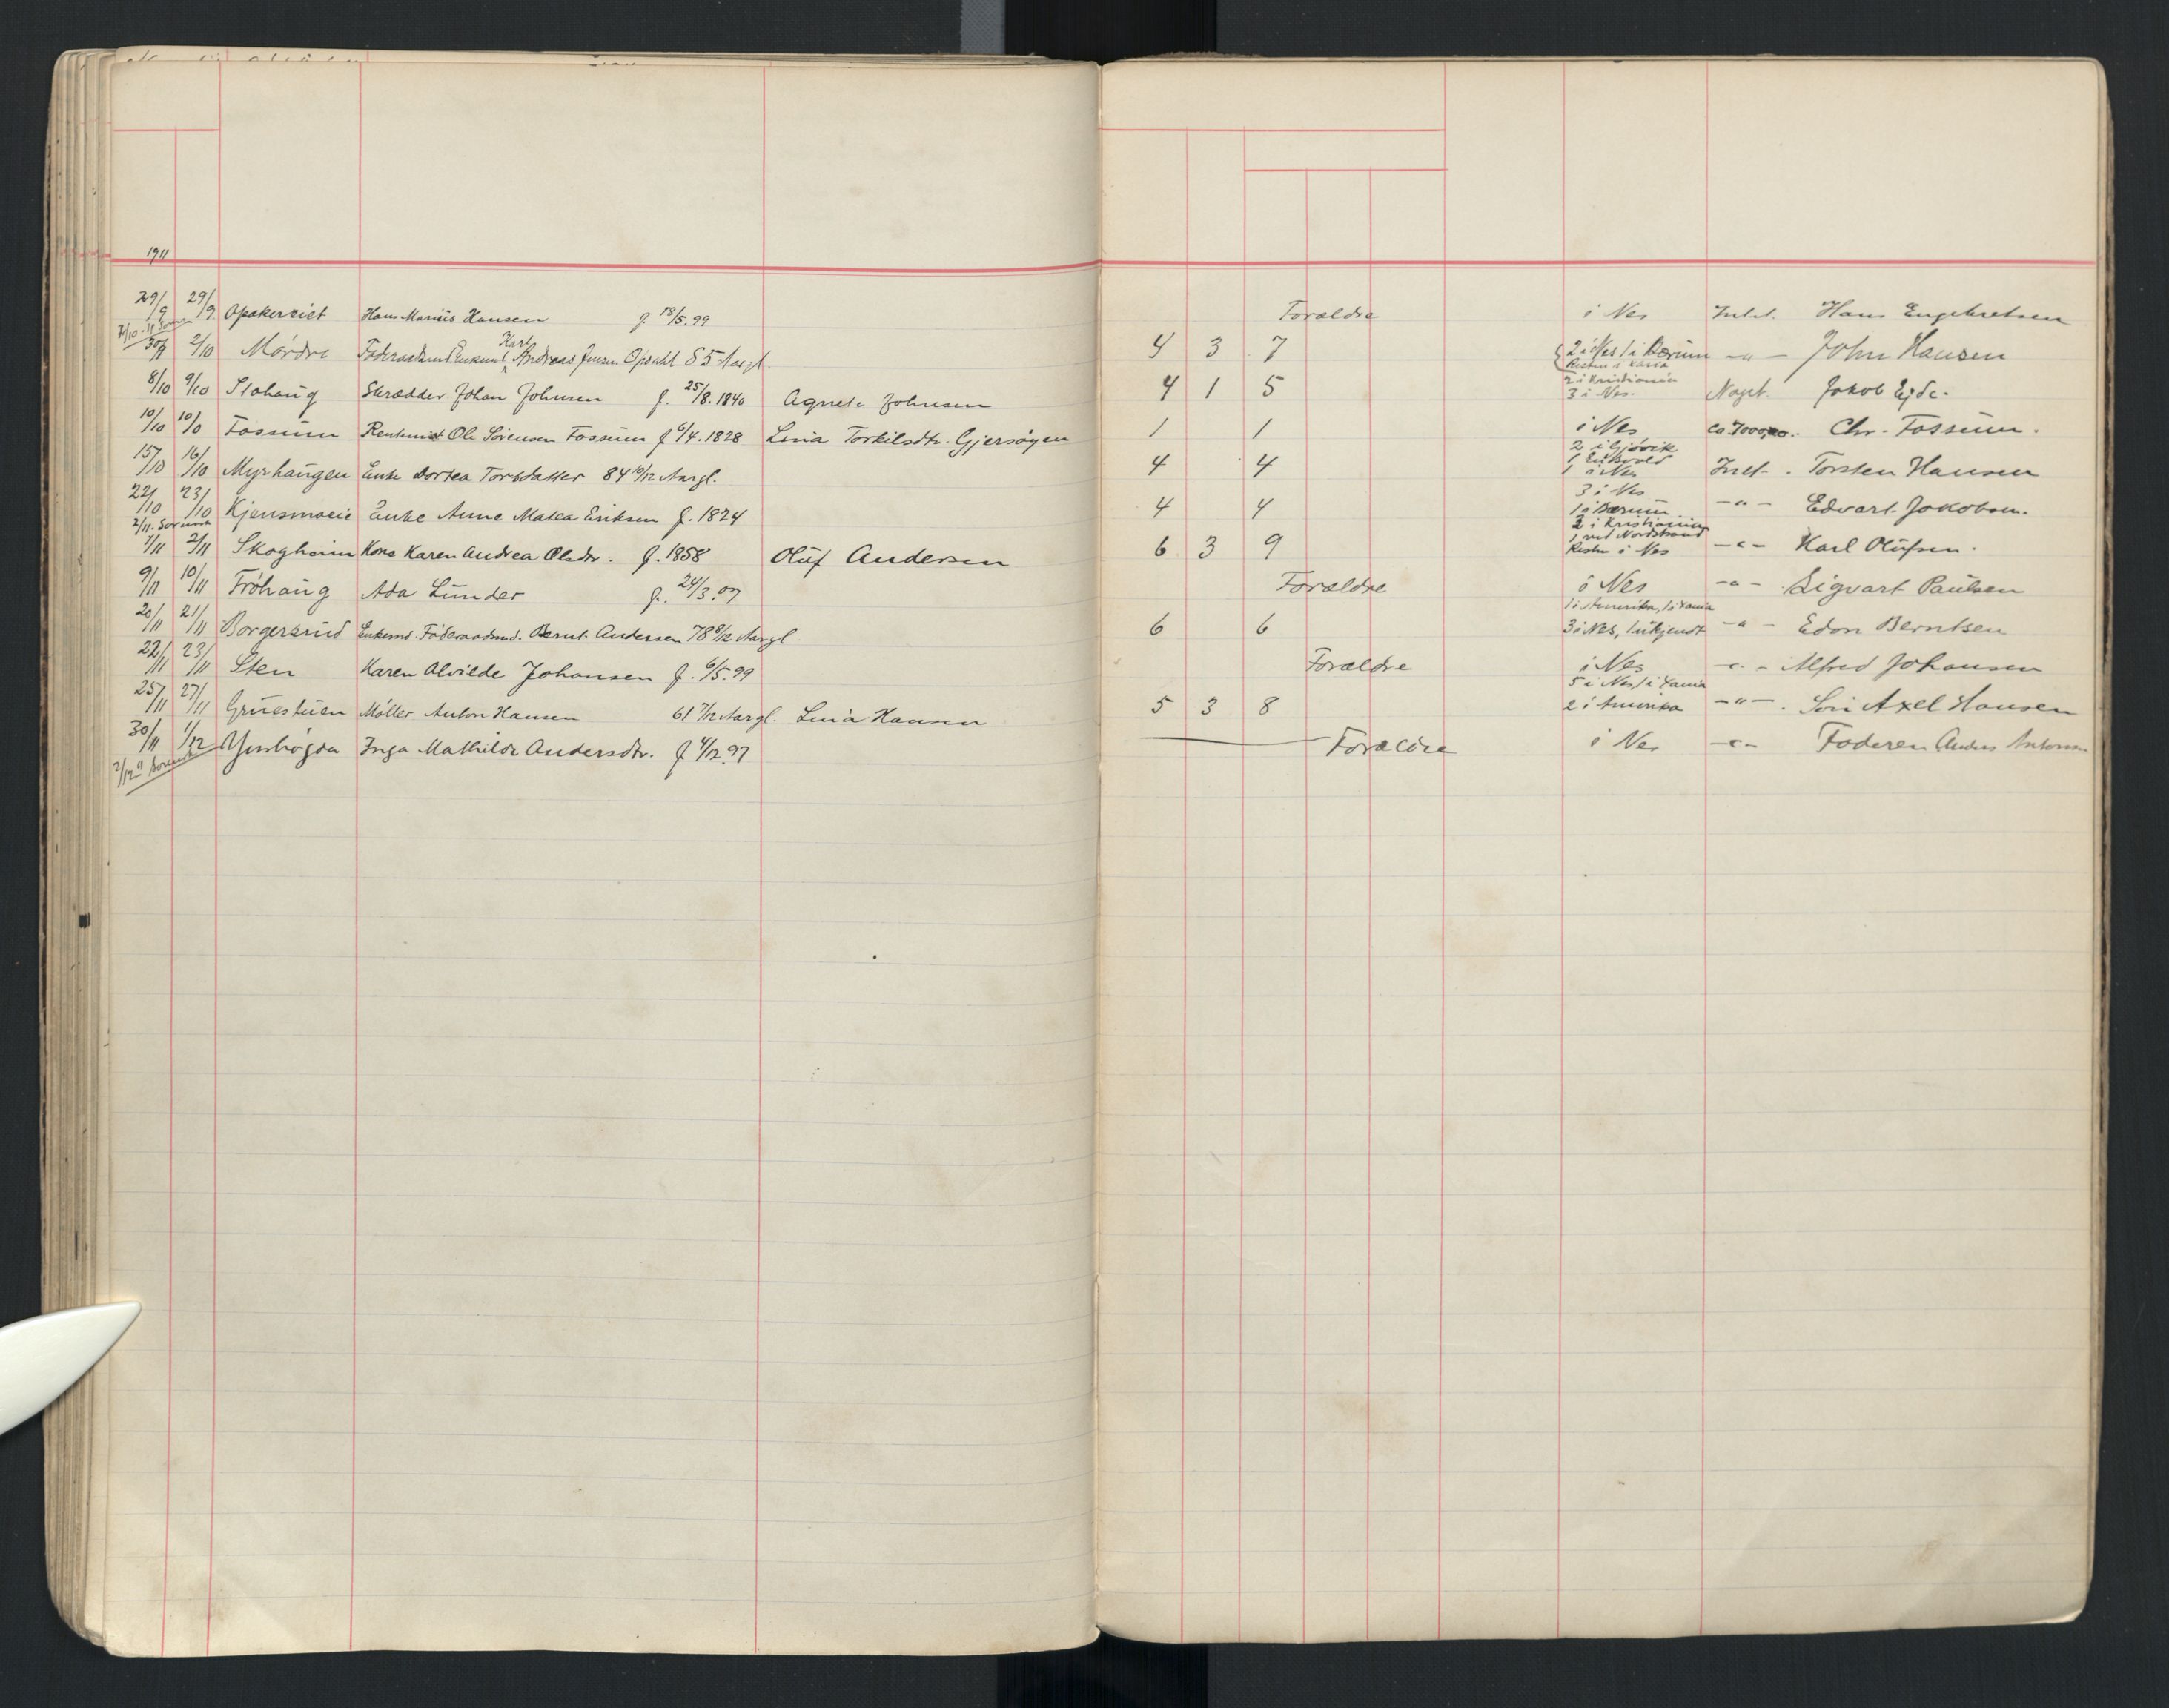 1911
29/9 29/9 Opakereiet Hans Marius Hansen f. 18/5.99 Forældre i Nes Intet. Hans Engebretsen
30/9 2/10 Mórdre Karl Andreas Jensen Opsahl 85 Aargl. 4 3 7 2 i Nes 1 i Bærum Resten i Kania —"— John Hansen
8/10 9/10 Stohaug Skrædder Johan Johnsen f. 25/8.1840 Agnete Johnsen 4 1 5 2 i Kristiania 3 i Nes. Noget. Jakob Ejde.
10/10 10/10 Fossum Ole Sörensen Fossum f 6/4.1828 Lina Torkilsdtr. Gjersöyen 1 1 i Nes ca 7000,00. Chr. Fossum.
15/10 16/10 Myrhaugen Enke Dortea Torsdatter 84 10/12 Aargl. 4 4 2 i Gjövik 1 Eidsvold 1 i Nes Intet. Torsten Hansen
22/10 23/10 Kjensmoeie Enke Anne Matea Eriksen f. 1824 4 4 3 i Nes 1 i Bærum —"— Edvart Jakobsen.
2/11 Skogheim Kone Karen Andrea Olsdtr. f. 1858 Oluf Andersen 6 3 9 2 i Kristiania 1 ved Nordstrand Resten i Nes —"— Karl Olufsen.
9/11 10/11 Fróhaug Ada Lunder f. 24/3.07 Forældre i Nes —"— Sigvart Paulsen
20/11 21/11 Borgersrud Enkemd. Föderaadsmd. Bernt Andersen 78 8/12 Aargl. 6 6 1 i Amerika, 1 i Kania 3 i Nes, 1 ukjendt —"— Edon Berntsen
22/11 23/11 Sten Karen Alvilde Johansen f. 6/5.99 Forældre i Nes —"— Alfred Johansen
25/11 27/11 Gruestuen Möller Anton Hansen 61 7/12 Aargl. Lina Hansen 5 3 8 5 i Nes, 1 i Kania 2 i Amerika —"— Son Axel Hansen
30/11 1/12 Inga Mathilde Andersdtr. f 4/12.97 Forældre i Nes —"— Faderen Anders Antonsen